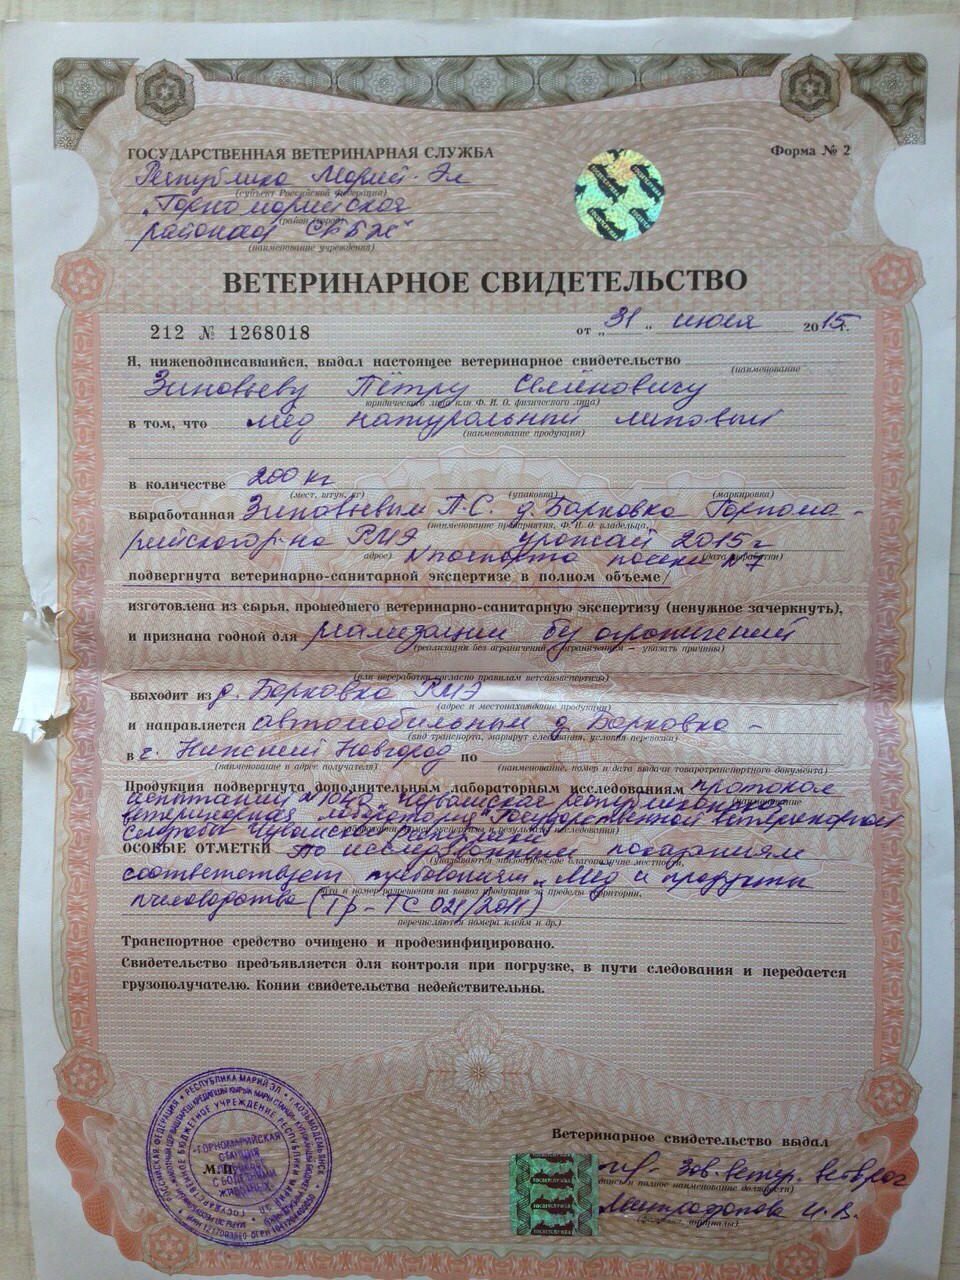 ГОСУДАРСТВЕННАЯ ВЕТЕРИНАРНАЯ СЛУЖБА
Форма № 2
Республика Марий-Эл
(субъект Российской Федерации)
"Горномарийская
(район (город)
районная СББЖ"
(наименование учреждения)
ВЕТЕРИНАРНОЕ СВИДЕТЕЛЬСТВО
212 № 1268018 от „ 31 “ июля 2015г.
Я, нижеподписавшийся, выдал настоящее ветеринарное свидетельство
(наименование
Зиновьеву Пётру Семёновичу
юридического лица или Ф. И. О. физического лица)
в том, что мёд натуральный липовый
(наименование продукции)
в количестве 200 кг
(мест, штук, кг) (упаковка) (маркировка)
выработанная Зиновьевым П.С. д. Барковка Горнома-
(наименование предприятия, Ф. И. О. владельца,
рийского р-на РМЭ урожай 2015г
адрес) (дата выработки)
N паспорта пасеки N 7
подвергнута ветеринарно-санитарной экспертизе в полном объеме/
изготовлена из сырья, прошедшего ветеринарно-санитарную экспертизу (ненужное зачеркнуть),
и признана годной для реализации без ограничений
(реализации без ограничений, с ограничением – указать причины)
(или переработки согласно правилам ветсанэкспертизы)
выходит из д. Барковка РМЭ
(адрес и местонахождение продукции)
и направляется автомобильным д. Барковка –
(вид транспорта, маршрут следования, условия перевозки)
в г. Нижний Новгород по
(наименование и адрес получателя) (наименование, номер и дата выдачи товаротранспортного документа)
Продукция подвергнута дополнительным лабораторным исследованиям протокол
(наименование
испытаний "Чувашская республиканская
ветеринарная лаборатория" Государственной ветеринарной
лаборатории, номер экспертизы и результаты исследования)
службы Чувашской Республики
ОСОБЫЕ ОТМЕТКИ По исследованным показаниям
(указываются эпизоотическое благополучие местности,
соответствует требованиям „Мёд и продукты
дата и номер разрешения на вывоз продукции за пределы территории,
пчеловодства (Тр-ТС 021/2011)
перечисляются номера клейм и др.)
Транспортное средство очищено и продезинфицировано.
Свидетельство предъявляется для контроля при погрузке, в пути следования и передается
грузополучателю. Копии свидетельства недействительны.
Ветеринарное свидетельство выдал
Зав. ветер. ветврач
(подпись и полное наименование должности)
Митрофанова И.В.
(фамилия, инициалы)
М.П.
РОССИЙСКАЯ ФЕДЕРАЦИЯ • РЕСПУБЛИКА МАРИЙ ЭЛ • Г. КОЗЬМОДЕМЬЯНСК
ГОСУДАРСТВЕННОЕ БЮДЖЕТНОЕ УЧРЕЖДЕНИЕ РЕСПУБЛИКИ МАРИЙ ЭЛ
«ГОРНОМАРИЙСКАЯ
СТАНЦИЯ
С БОЛЕЗНЯМИ
ЖИВОТНЫХ»